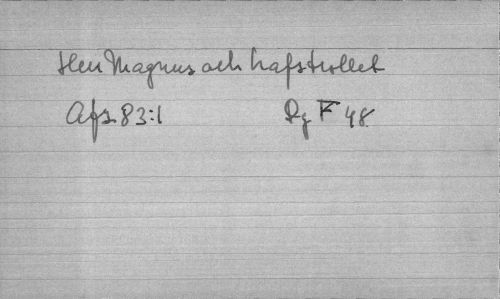 Herr Magnus och hafstrollet
Afs. 83:1 Dg F 48